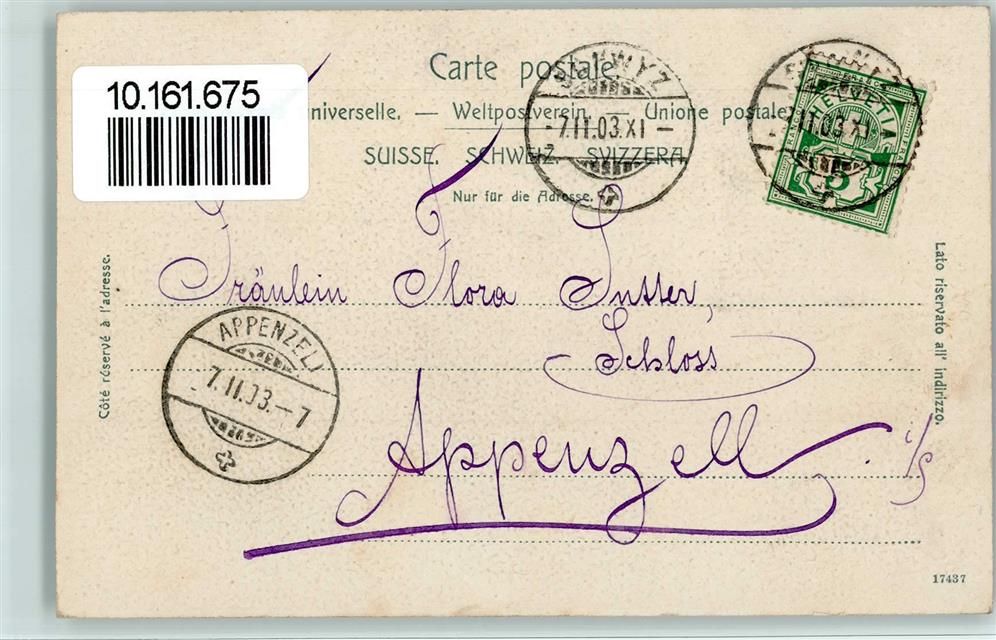 10.161.675
Carte postale.
universelle. — Weltpostverein. — Unione postale
SUISSE. SCHWEIZ. SVIZZERA.
Nur für die Adresse.
WYZ
-7.11.03.XI-
HELVETIA
FRANCO
5
11.03.XI
Côté réservé à l'adresse.
Lato riservato all' indirizzo.
Fräulein Flora Sutter,
Schloss
Appenzell. i/s
APPENZELL
7.11.03.-7
17437